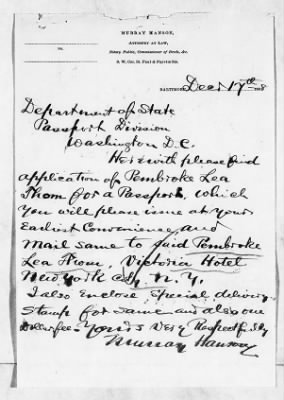 MURRAY HANSON,
ATTORNEY AT LAW,
Notary Public, Commissioner of Deeds, &c.
S. W. Cor. St. Paul & Fayette Sts.
TO
BALTIMORE, Dec 17th
Department of State
Passport Division
Washington D.C.
Herewith please find
application of Pembroke Lea
Thom for a Passport, which
you will please issue at your
Earliest Convenience, and
Mail same to said Pembroke
Lea Thom, Victoria Hotel
New York City N.Y.
I also Enclose Special delivery
Stamp for same and also one
Dollar fee - Yours Very Respectfully
Murray Hanson